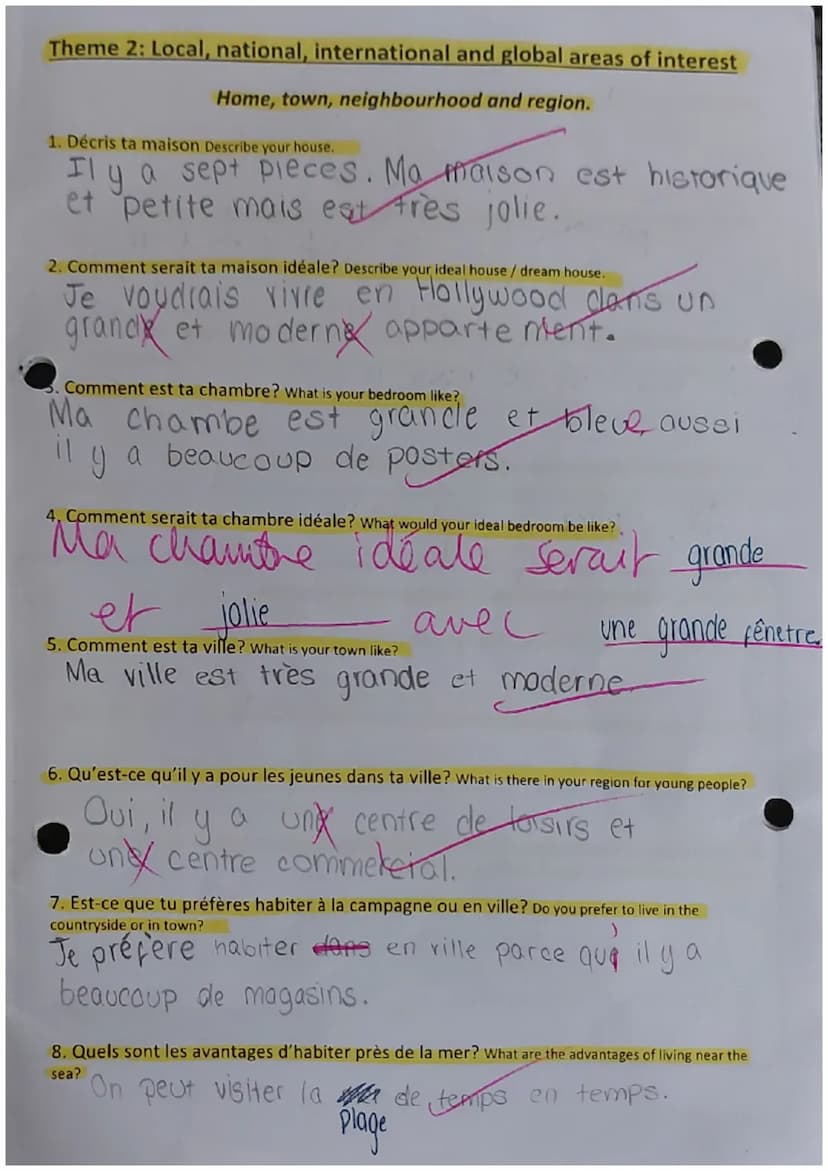 Theme 2: Local, national, international and global areas of interest
Home, town, neighbourhood and region.
1. Décris ta maison Describe your house.
Il y a sept pieces. Ma maison est historique
et petite mais est très jolie.
2. Comment serait ta maison idéale? Describe your ideal house / dream house.
Je voudrais vivre en Hollywood dans un
grande et moderne appartement.
3. Comment est ta chambre? What is your bedroom like?
Ma chambe est grande et bleue, aussi
il y a beaucoup de posters.
4. Comment serait ta chambre idéale? What would your ideal bedroom be like?
Ma chambre idéale serait grande
et jolie avec une grande fênetre
5. Comment est ta ville? What is your town like?
Ma ville est très grande et moderne
6. Qu'est-ce qu'il y a pour les jeunes dans ta ville? What is there in your region for young people?
Oui, il y a une centre de loisirs et
une centre commercial.
7. Est-ce que tu préfères habiter à la campagne ou en ville? Do you prefer to live in the
countryside or in town?
Je préfère habiter dans en ville parce qu' il y a
beaucoup de magasins.
8. Quels sont les avantages d'habiter près de la mer? What are the advantages of living near the
sea?
On peut visiter la de temps en temps.
plage